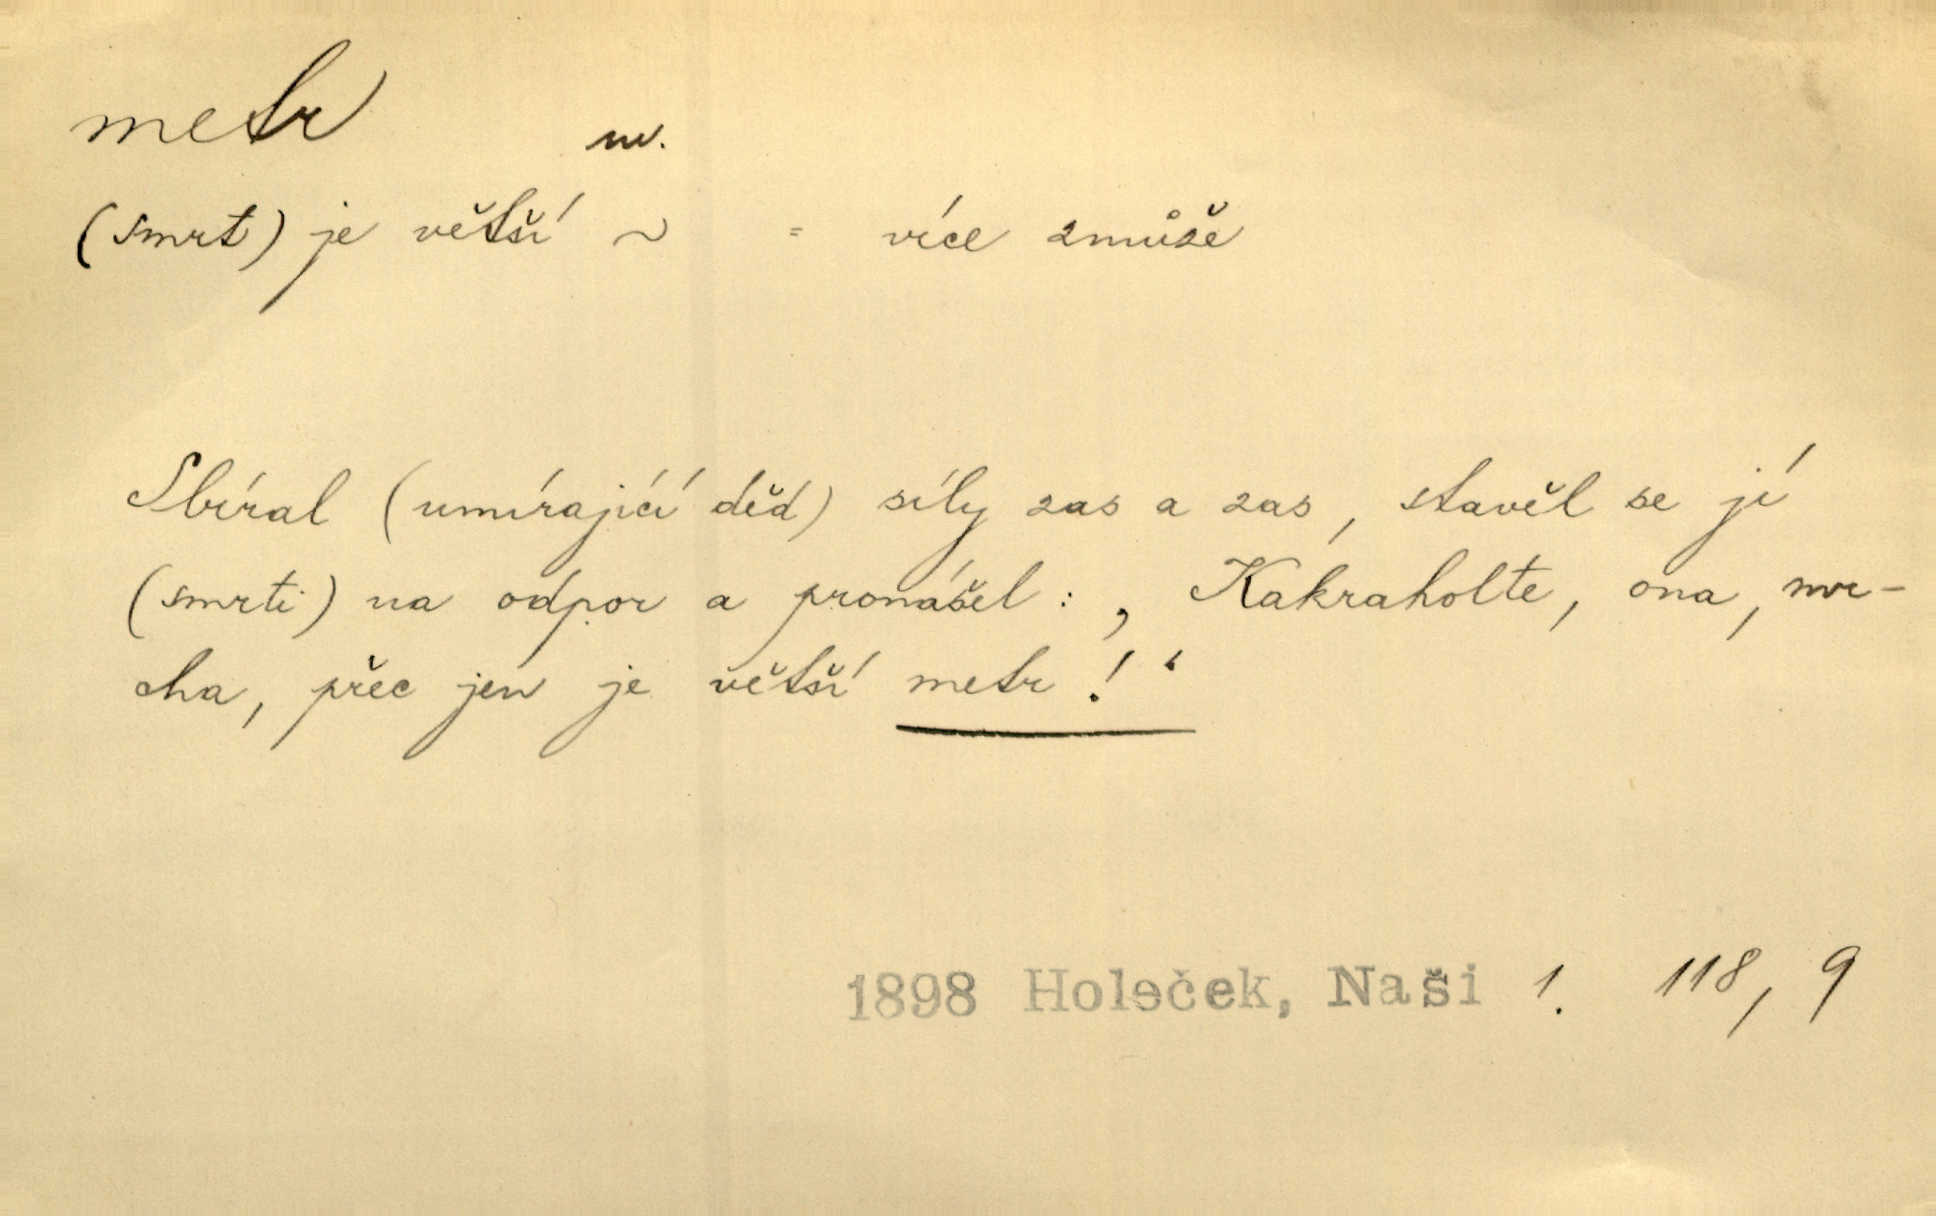 metr
m.
(smrt) je větší ~ = více zmůže
Sbíral (umírající děd) síly zas a zas, stavěl se jí
(smrti) na odpor a pronášel: „Kakraholte, ona, mr-
cha, přec jen je větší metr!“
1898 Holeček, Naši 1. 118, 9